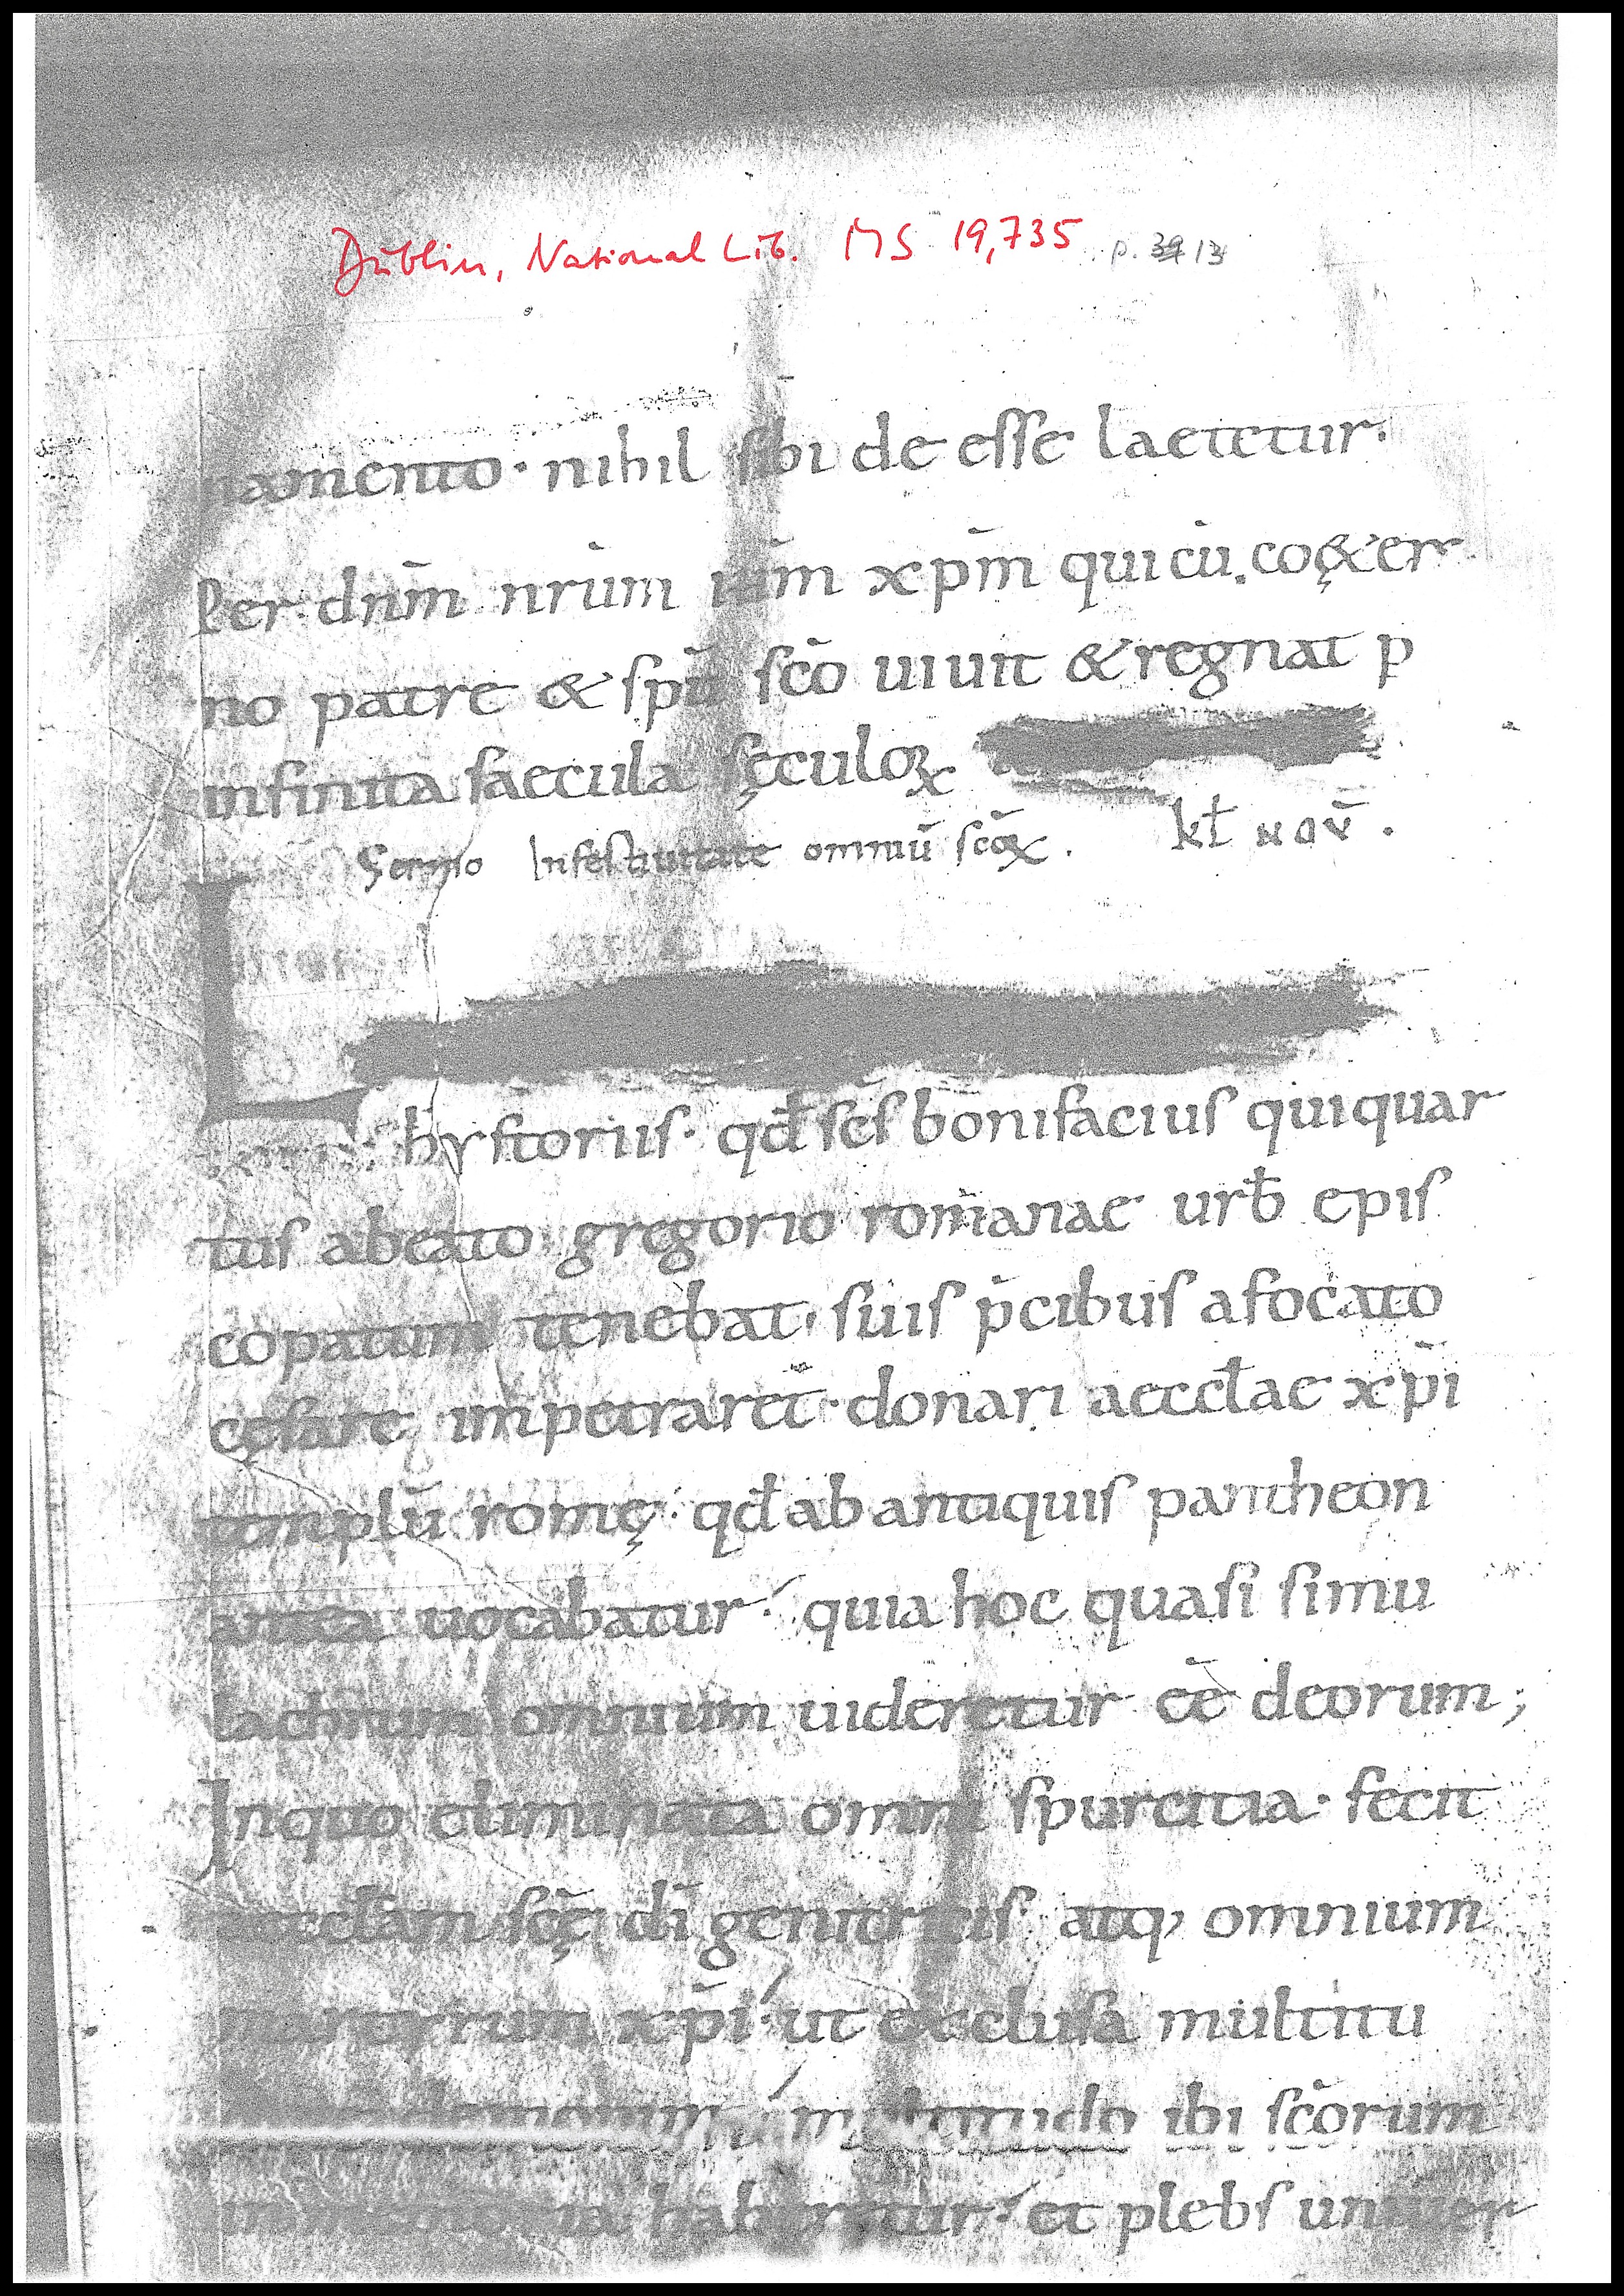 Dublin, National Lib. MS 19,735 p. 13
namento · nihil sibi de esse laetetur.
Per dnm̄ nr̄um ihm̄ xp̄m qui cū. coę&er
no patre & spū sc̄o uiuit & regnat p̄
infinita saecula sęculoꝝ
Sermo In festiuitate omniū sc̄oꝝ. kƚ nov̄.
L
hystoriis · qđ sc̄s bonifacius qui quar
tus abeato gregorio romanae urƀ epis
copatum tenebat, suis p̄cibus afocato
cęsare impetraret̄ · donari aeccƚae xp̄i
templū romę · qđ ab antiquis pantheon
antea uocabatur · quia hoc quasi simu
lachrum omnium uideretur eē deorum;
In quo eliminata omni spurcitia · fecit
aeccƚam sc̄ę dī genitricis atq; omnium
martyrum xp̄i · ut exclusa multitu
demonum multitudo ibi sc̄orum
haberetur · et plebs uniuer